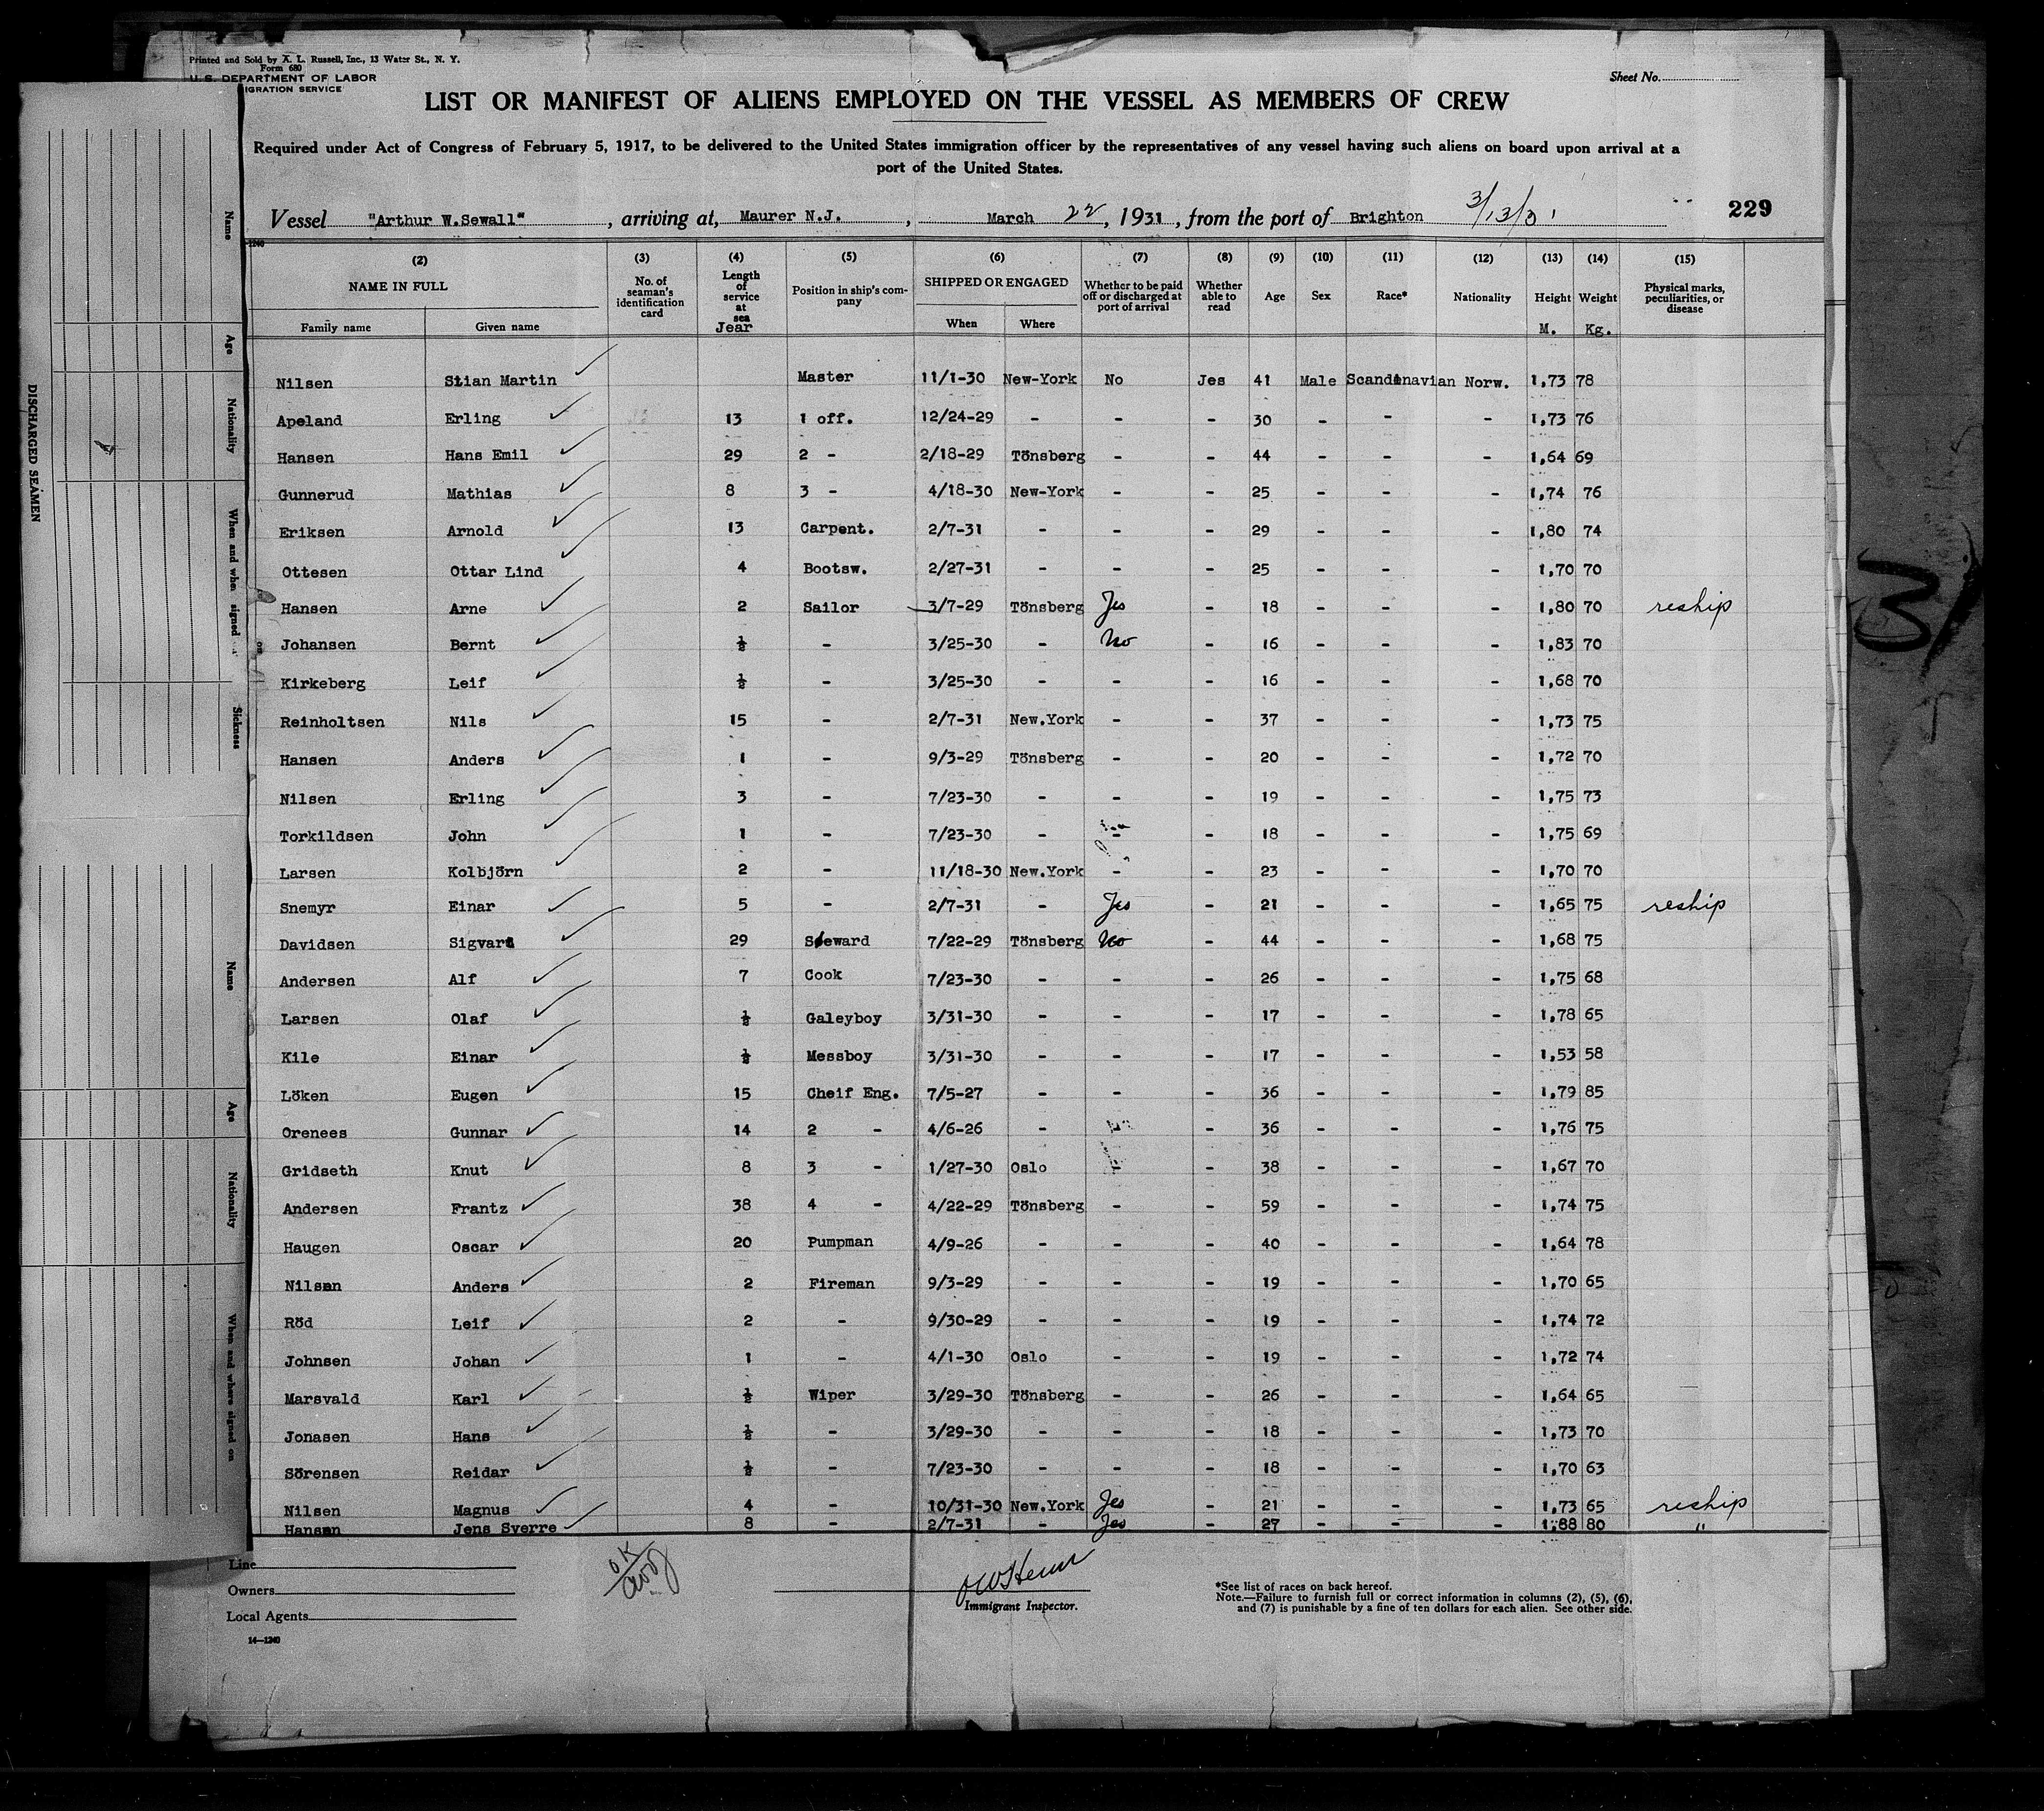 Printed and Sold by X. L. Russell, Inc., 13 Water St., N. Y.
Form 680
U. S. DEPARTMENT OF LABOR
IGRATION SERVICE
Sheet No.
LIST OR MANIFEST OF ALIENS EMPLOYED ON THE VESSEL AS MEMBERS OF CREW
Required under Act of Congress of February 5, 1917, to be delivered to the United States immigration officer by the representatives of any vessel having such aliens on board upon arrival at a
port of the United States.
Vessel "Arthur W.Sewall", arriving at, Maurer N.J., March 22, 1931, from the port of Brighton 3/13/31 229
1240
(2) (3) (4) (5) (6) (7) (8) (9) (10) (11) (12) (13) (14) (15)
NAME IN FULL No. of seaman's identification card Length of service at sea Position in ship's company SHIPPED OR ENGAGED Whether to be paid off or discharged at port of arrival Whether able to read Age Sex Race* Nationality Height Weight Physical marks, peculiarities, or disease
Family name Given name Jear When Where M. Kg.
Nilsen Stian Martin Master 11/1-30 New-York No Jes 41 Male Scandinavian Norw. 1,73 78
Apeland Erling 13 1 off. 12/24-29 - - - 30 - - - 1,73 76
Hansen Hans Emil 29 2 - 2/18-29 Tönsberg - - 44 - - - 1,64 69
Gunnerud Mathias 8 3 - 4/18-30 New-York - - 25 - - - 1,74 76
Eriksen Arnold 13 Carpent. 2/7-31 - - - 29 - - - 1,80 74
Ottesen Ottar Lind 4 Bootsw. 2/27-31 - - - 25 - - - 1,70 70
Hansen Arne 2 Sailor 3/7-29 Tönsberg Jes - 18 - - - 1,80 70 reship
Johansen Bernt ½ - 3/25-30 - No - 16 - - - 1,83 70
Kirkeberg Leif ½ - 3/25-30 - - - 16 - - - 1,68 70
Reinholtsen Nils 15 - 2/7-31 New.York - - 37 - - - 1,73 75
Hansen Anders 1 - 9/3-29 Tönsberg - - 20 - - - 1,72 70
Nilsen Erling 3 - 7/23-30 - - - 19 - - - 1,75 73
Torkildsen John 1 - 7/23-30 - - - 18 - - - 1,75 69
Larsen Kolbjörn 2 - 11/18-30 New.York - - 23 - - - 1,70 70
Snemyr Einar 5 - 2/7-31 - Jes - 21 - - - 1,65 75 reship
Davidsen Sigvart 29 Steward 7/22-29 Tönsberg No - 44 - - - 1,68 75
Andersen Alf 7 Cook 7/23-30 - - - 26 - - - 1,75 68
Larsen Olaf ½ Galeyboy 3/31-30 - - - 17 - - - 1,78 65
Kile Einar ½ Messboy 3/31-30 - - - 17 - - - 1,53 58
Löken Eugen 15 Cheif Eng. 7/5-27 - - - 36 - - - 1,79 85
Orenees Gunnar 14 2 - 4/6-26 - - - 36 - - - 1,76 75
Gridseth Knut 8 3 - 1/27-30 Oslo - - 38 - - - 1,67 70
Andersen Frantz 38 4 - 4/22-29 Tönsberg - - 59 - - - 1,74 75
Haugen Oscar 20 Pumpman 4/9-26 - - - 40 - - - 1,64 78
Nilsen Anders 2 Fireman 9/3-29 - - - 19 - - - 1,70 65
Röd Leif 2 - 9/30-29 - - - 19 - - - 1,74 72
Johnsen Johan 1 - 4/1-30 Oslo - - 19 - - - 1,72 74
Marsvald Karl ½ Wiper 3/29-30 Tönsberg - - 26 - - - 1,64 65
Jonasen Hans ½ - 3/29-30 - - - 18 - - - 1,73 70
Sörensen Reidar ½ - 7/23-30 - - - 18 - - - 1,70 63
Nilsen Magnus 4 - 10/31-30 New.York Jes - 21 - - - 1,73 65 reship
Hansen Jens Sverre 8 - 2/7-31 - Jes - 27 - - - 1,88 80 "
Line
Owners
Local Agents
14—1240
OK
Immigrant Inspector.
*See list of races on back hereof.
Note.—Failure to furnish full or correct information in columns (2), (5), (6),
and (7) is punishable by a fine of ten dollars for each alien. See other side.
DISCHARGED SEAMEN
Name
Age
Nationality
When and when signed on
Sickness
Name
Age
Nationality
When and where signed on
31